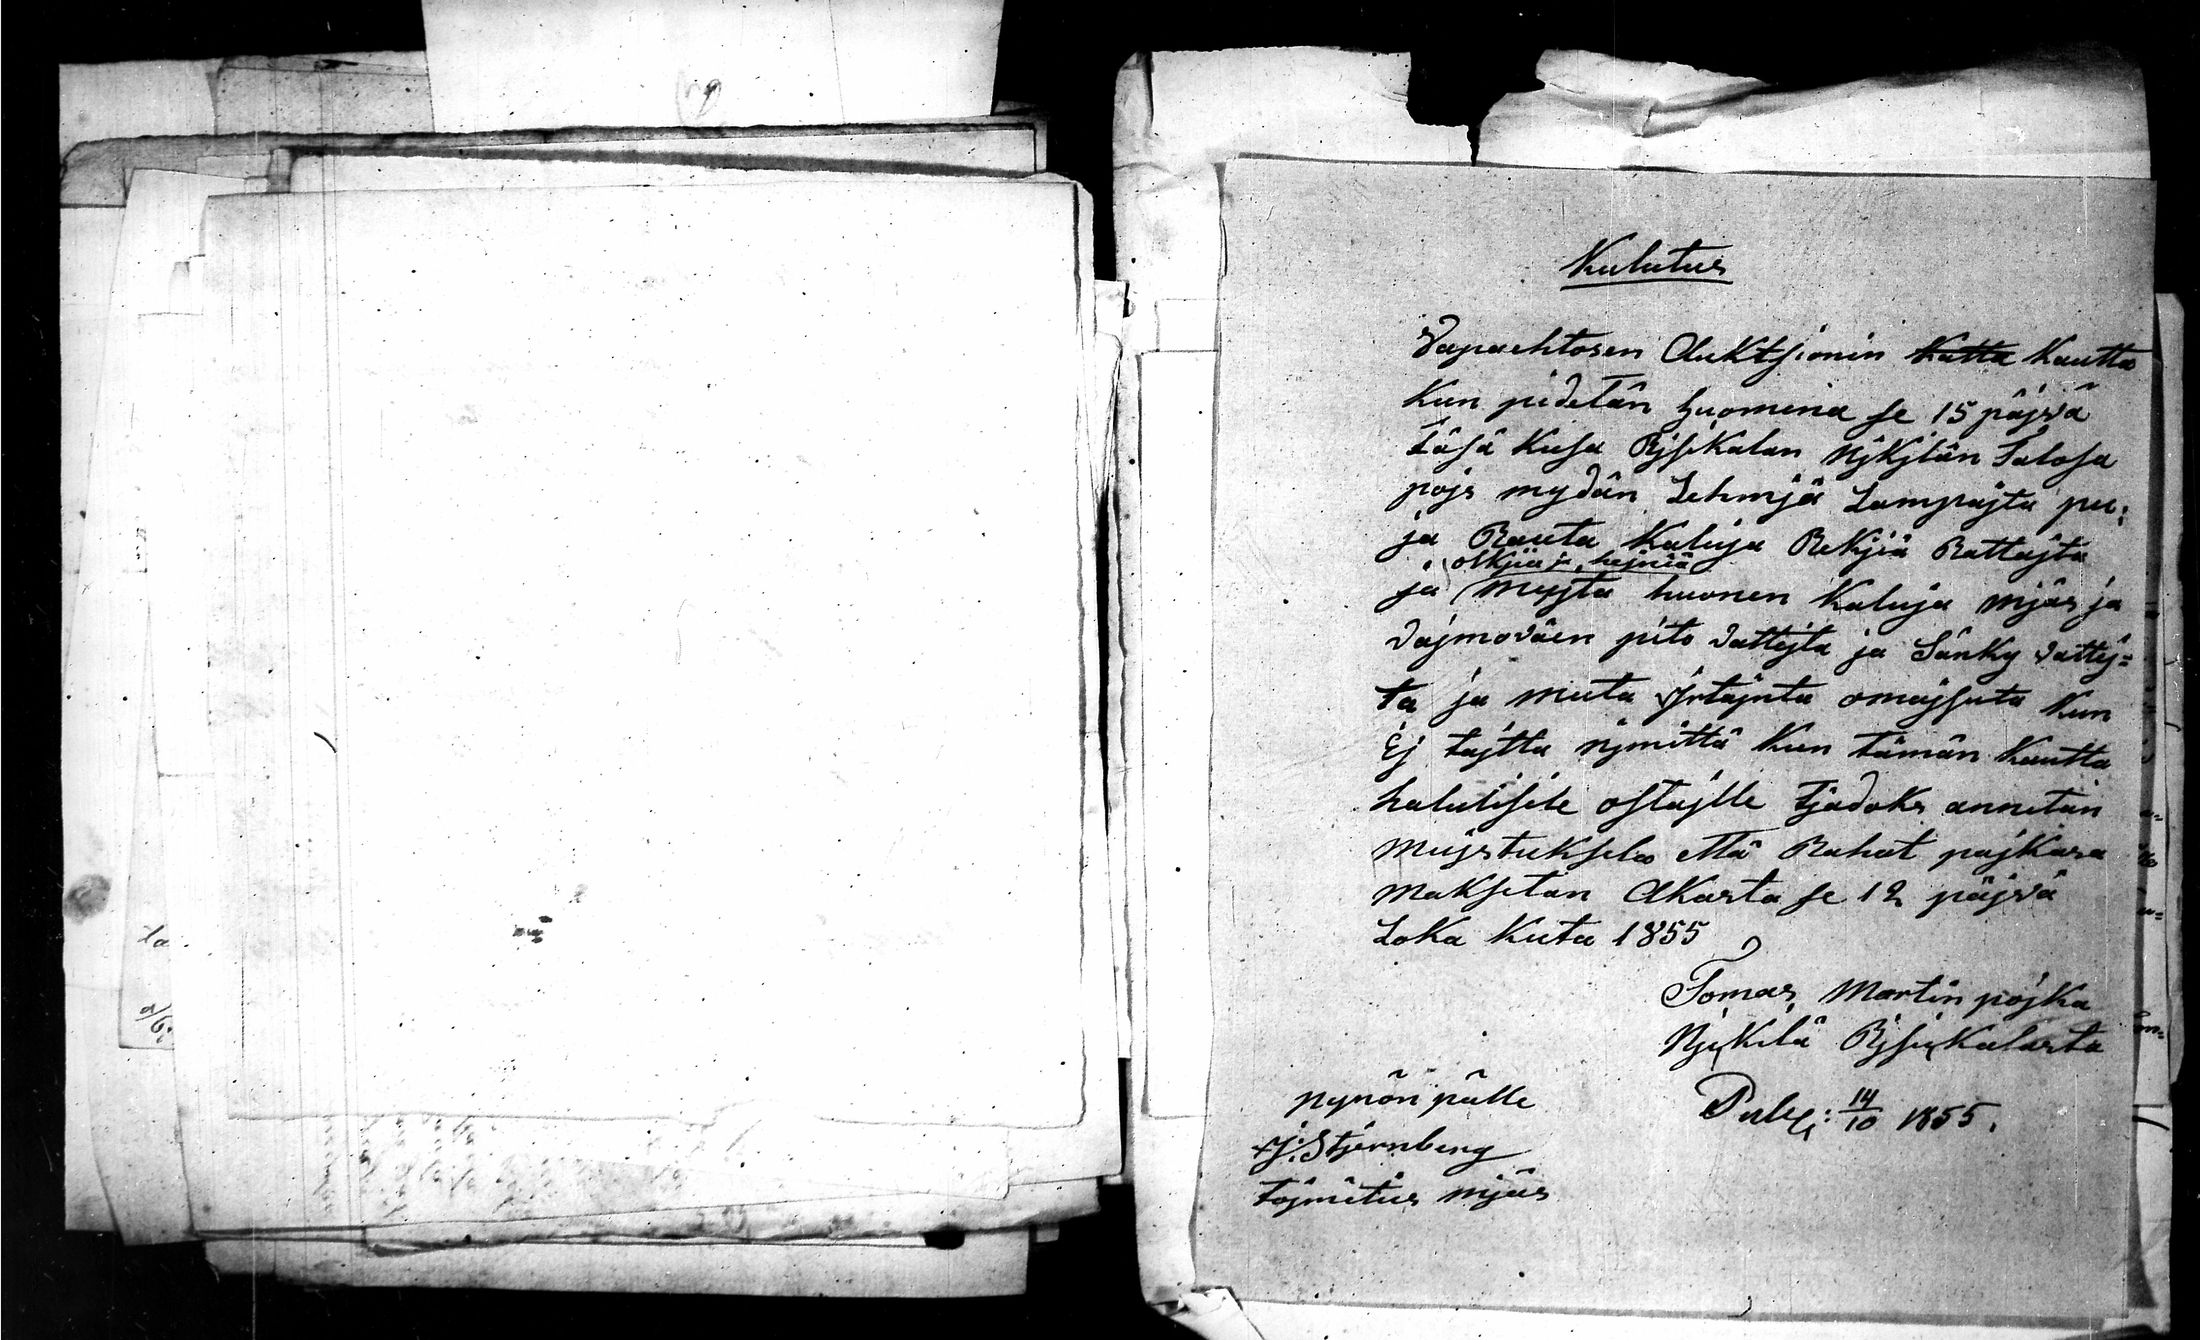 Kulutus
Vapaehtosen Auktsionin Katta Kautta
Kun pidetän huomena se 15 päjvä
täsä Kusa Rjsikalan Njkjlän Talosa
pojs mydän Lehmjä Lampajta pu:
ja Rauta Kaluja Rekjiä Rattajta
olkjia ja hejniä
ja Mujta huonen Kaluja mjäs ja
vajmoväen pito vattejta ja Sänky vattej=
ta ja muta Jrtajnta omajsuta Kun
Ej tajtta njmittä Kun tämän Kautta
halulisile ostajlle tjadoks annetan
mujstuksela että Rahat pajkasa
maksetan Akasta se 12 päjvä
Loka Kuta 1855
Tomas Martin pojka
Njkilä Rjsikalasta
pynön pälle
J: Stjernberg
tojmitus mjäs
Publ: 14/10 1855.